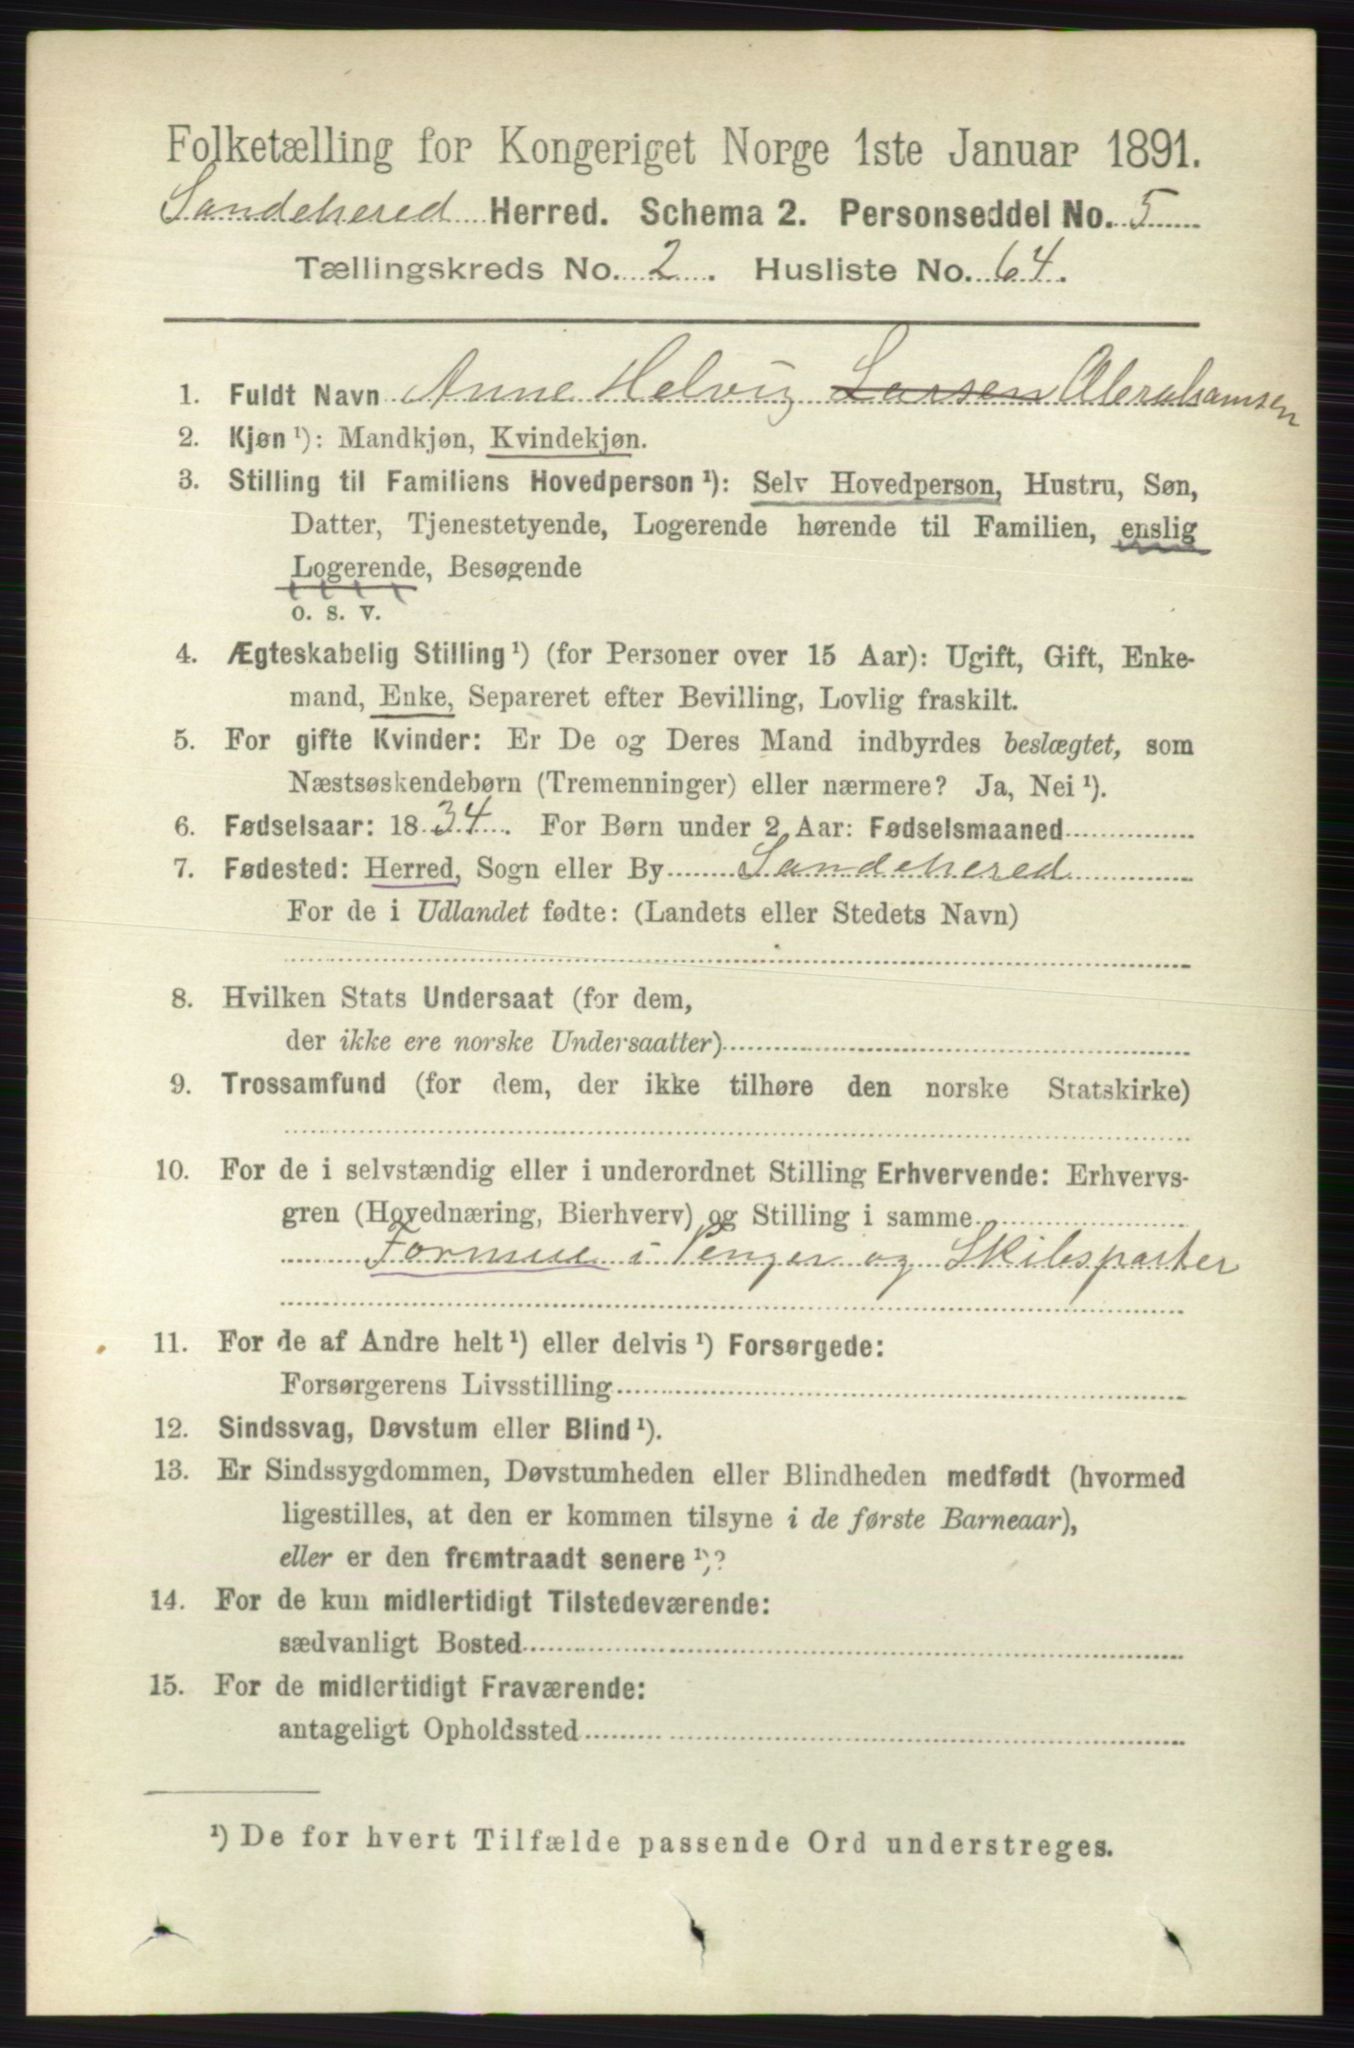 Folketælling for Kongeriget Norge 1ste Januar 1891.
Sandehered Herred. Schema 2. Personseddel No. 5
Tællingskreds No. 2. Husliste No. 64.
1. Fuldt Navn Anne Helvig Larsen Abrahamsen
2. Kjøn ¹): Mandkjøn, Kvindekjøn.
3. Stilling til Familiens Hovedperson ¹): Selv Hovedperson, Hustru, Søn,
Datter, Tjenestetyende, Logerende hørende til Familien, enslig
Logerende, Besøgende
o. s. v.
4. Ægteskabelig Stilling ¹) (for Personer over 15 Aar): Ugift, Gift, Enke-
mand, Enke, Separeret efter Bevilling, Lovlig fraskilt.
5. For gifte Kvinder: Er De og Deres Mand indbyrdes beslægtet, som
Næstsøskendebørn (Tremenninger) eller nærmere? Ja, Nei ¹).
6. Fødselsaar: 1834. For Børn under 2 Aar: Fødselsmaaned
7. Fødested: Herred, Sogn eller By Sandehered
For de i Udlandet fødte: (Landets eller Stedets Navn)
8. Hvilken Stats Undersaat (for dem,
der ikke ere norske Undersaatter)
9. Trossamfund (for dem, der ikke tilhøre den norske Statskirke)
10. For de i selvstændig eller i underordnet Stilling Erhvervende: Erhvervs-
gren (Hovednæring, Bierhverv) og Stilling i samme
Formue i Penger og Skibsparter
11. For de af Andre helt ¹) eller delvis ¹) Forsørgede:
Forsørgerens Livsstilling
12. Sindssvag, Døvstum eller Blind ¹).
13. Er Sindssygdommen, Døvstumheden eller Blindheden medfødt (hvormed
ligestilles, at den er kommen tilsyne i de første Barneaar),
eller er den fremtraadt senere ¹)?
14. For de kun midlertidigt Tilstedeværende:
sædvanligt Bosted
15. For de midlertidigt Fraværende:
antageligt Opholdssted
¹) De for hvert Tilfælde passende Ord understreges.